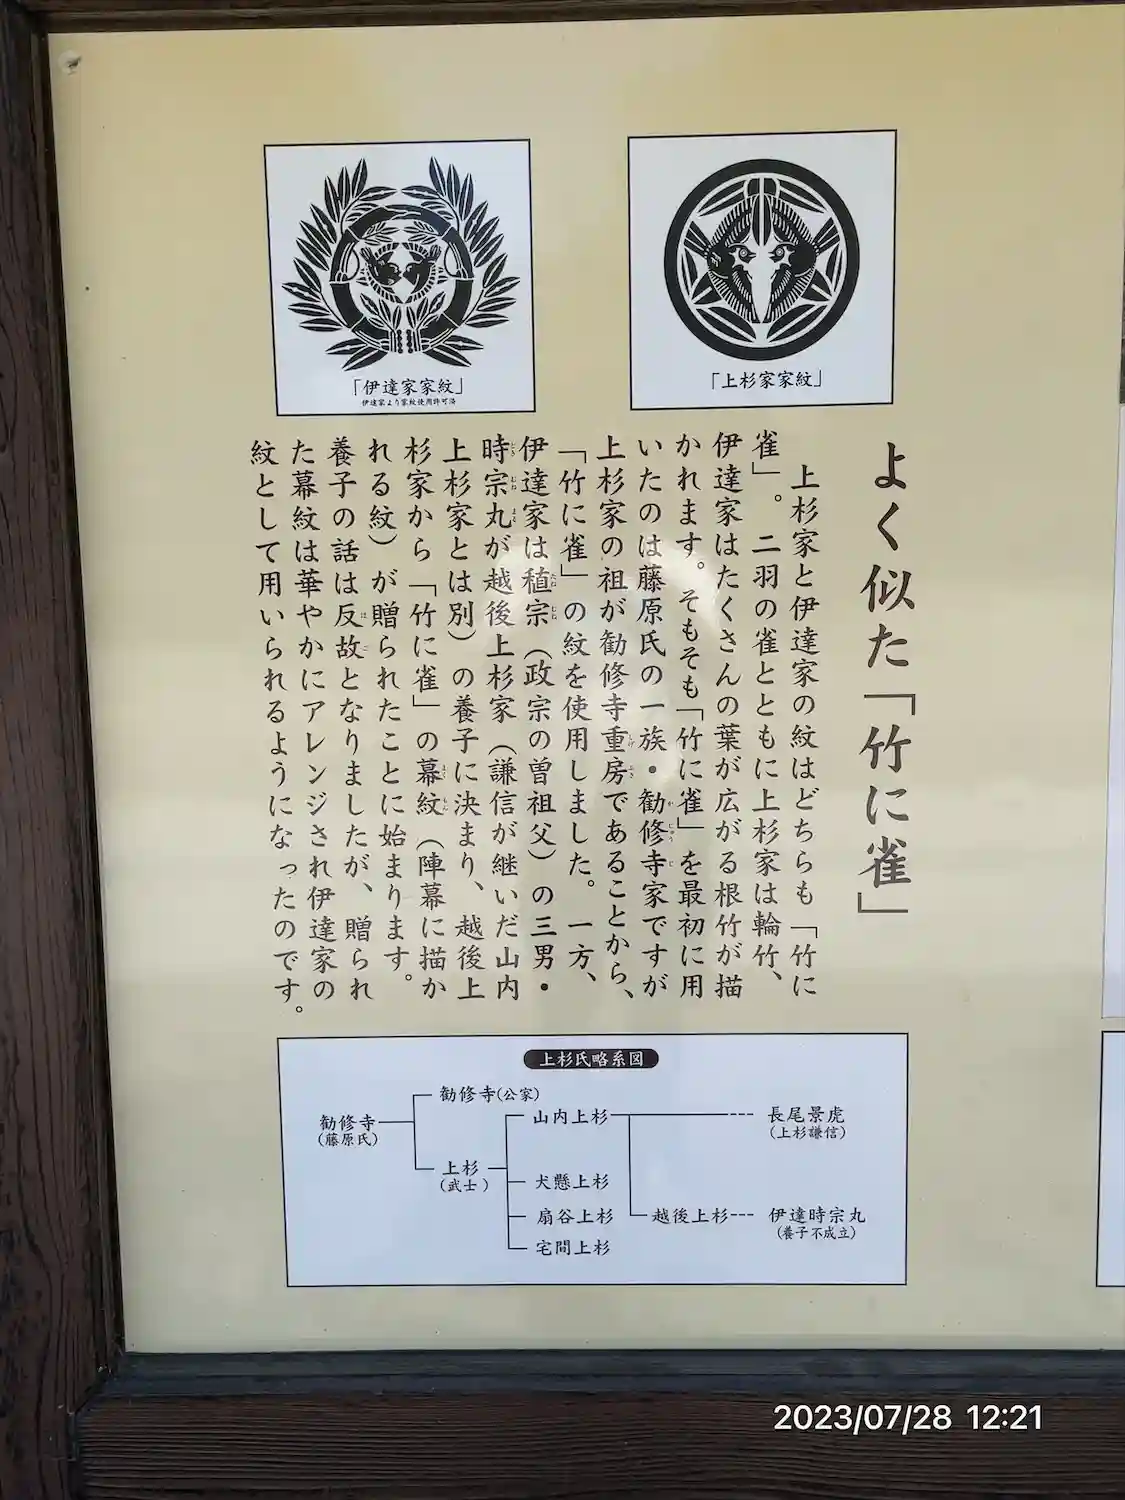 「上杉家家紋」
「伊達家家紋」
伊達家より家紋使用許可済
よく似た「竹に雀」
上杉家と伊達家の紋はどちらも「竹に
雀」。二羽の雀とともに上杉家は輪竹、
伊達家はたくさんの葉が広がる根竹が描
かれます。そもそも「竹に雀」を最初に用
いたのは藤原氏の一族・勧修寺家ですが
上杉家の祖が勧修寺重房であることから、
「竹に雀」の紋を使用しました。一方、
伊達家は稙宗（政宗の曽祖父）の三男・
時宗丸が越後上杉家（謙信が継いだ山内
上杉家とは別）の養子に決まり、越後上
杉家から「竹に雀」の幕紋（陣幕に描か
れる紋）が贈られたことに始まります。
養子の話は反故となりましたが、贈られ
た幕紋は華やかにアレンジされ伊達家の
紋として用いられるようになったのです。
上杉氏略系図
勧修寺
(藤原氏)
勧修寺(公家)
上杉
(武士)
山内上杉
犬懸上杉
扇谷上杉
宅間上杉
長尾景虎
(上杉謙信)
越後上杉
伊達時宗丸
(養子不成立)
2023/07/28 12:21